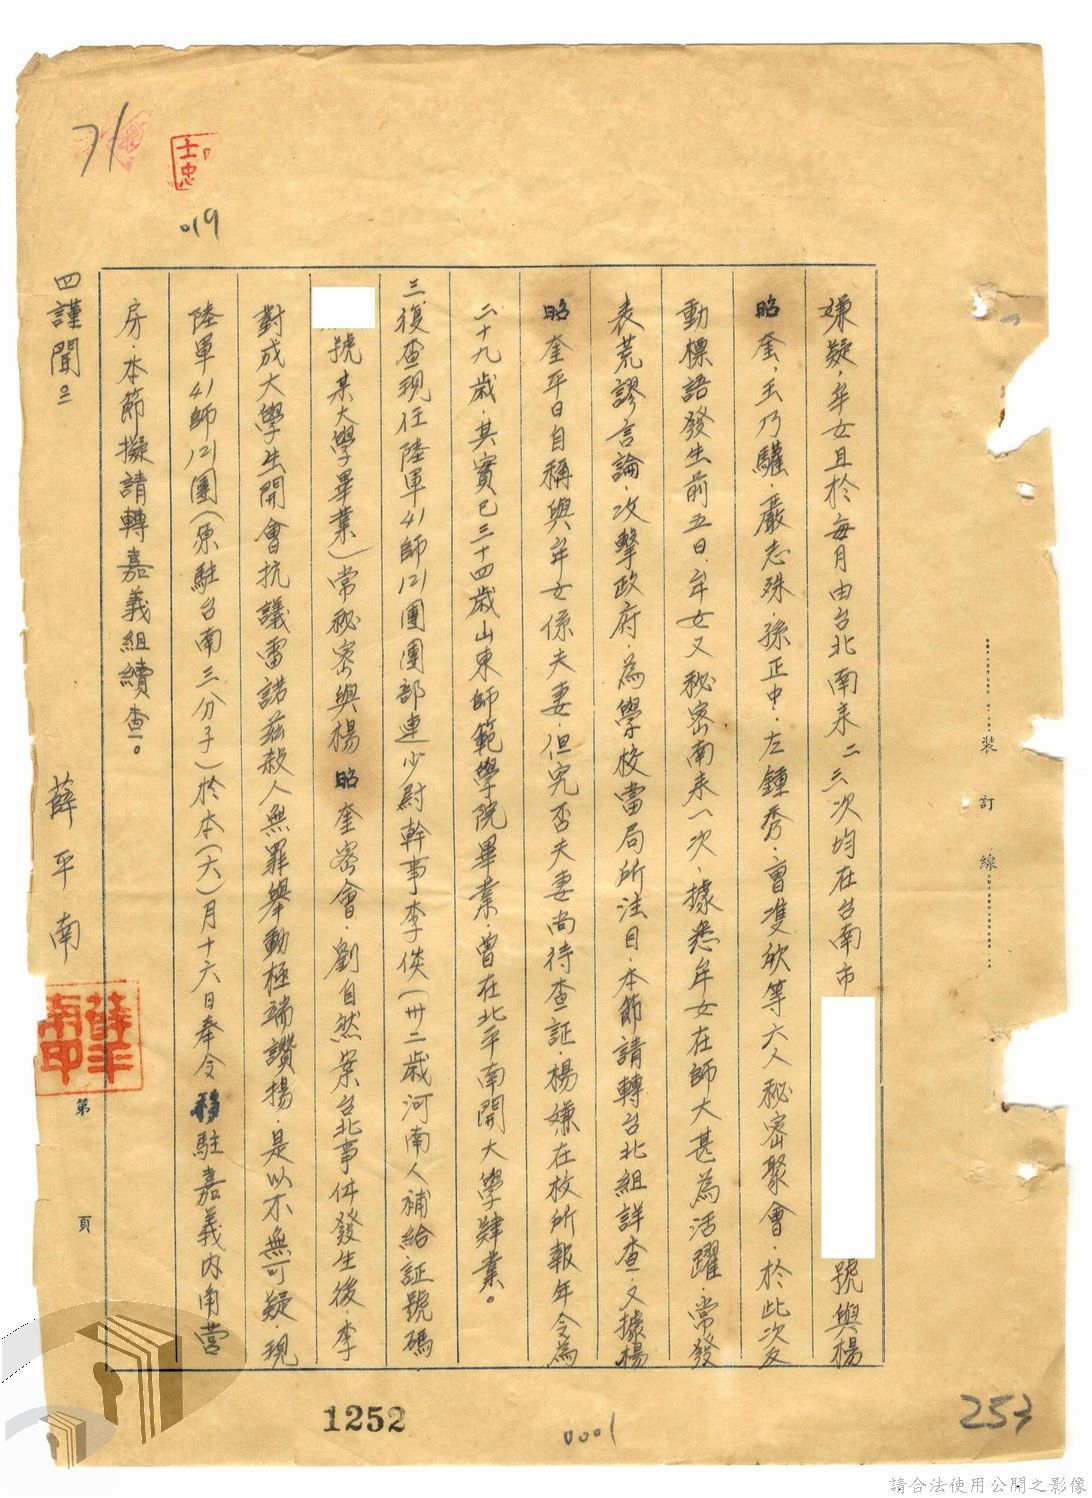 71
士忠
019
嫌疑,牟女且於每月由台北南來二三次均在台南市
號與楊
昭奎,王乃驥.嚴志殊.孫正中.左鍾秀.曾隻欣等六人秘密聚會.於此次反
動標語發生前五日.牟女又秘密南來一次.據悉牟女在師大甚為活躍.常發
表荒謬言論.攻擊政府.為學校當局所注目.本節請轉台北組詳查.又據楊
昭奎平日自稱與牟女係夫妻.但究否夫妻尚待查証.楊嫌在校所報年令為
二十九歲.其實已三十四歲山東師範學院畢業.曾在北平南開大學肄業。
三復查現任陸軍41師121團團部連少尉幹事李倓(卅二歲河南人補給証號碼
號某大學畢業)常秘密與楊昭奎密會.劉自然案台北事件發生後.李
對成大學生開會抗議雷諾茲殺人無罪舉動極端讚揚.是以不無可疑.現
陸軍41師121團(原駐台南三分子)於本(六)月十六日奉令移駐嘉義內角營
房.本節擬請轉嘉義組續查。
四謹聞
薛平南
薛平南印
第 頁
裝 訂 線
1252
0001
253
請合法使用公開之影像